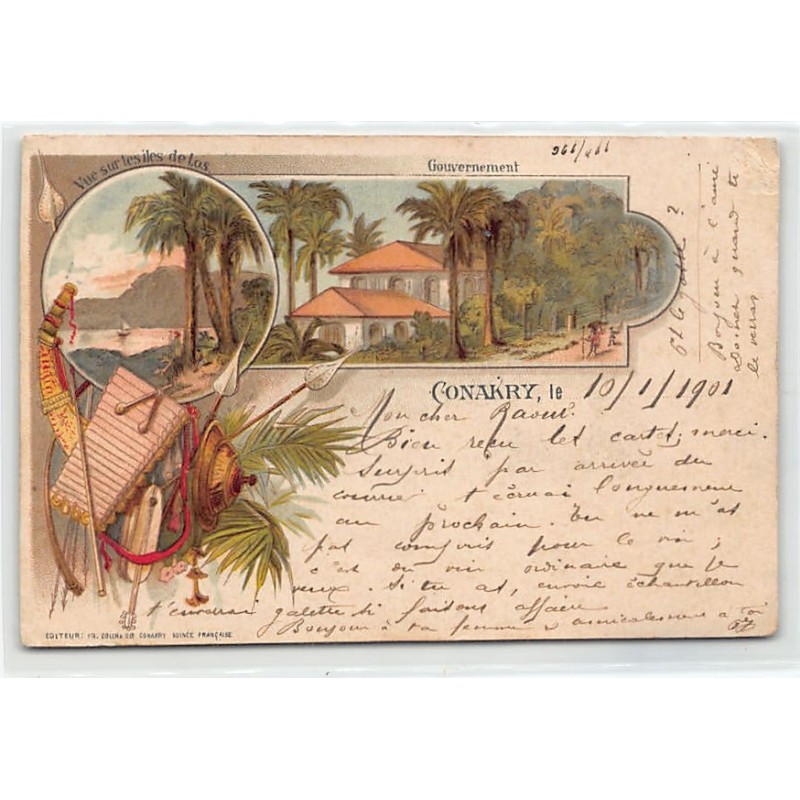 Vue sur les iles de Los
Gouvernement
CONAKRY, le 10/1/1901
Mon cher Raoul.
Bien reçu les cartes; merci.
Surpris par arrivée du
courrier t'écrirai longuement
au prochain. Tu ne m'as
pas compris pour le vin;
c'est du vin ordinaire que je
veux. Si tu as, envoie échantillon
t'enverrai galette si faisons affaire
Bonjour à ta femme & amicalement à toi
Et la gosse ?
Bonjour à l'ami
quand tu
le verras
EDITEUR: CONAKRY GUINÉE FRANÇAISE